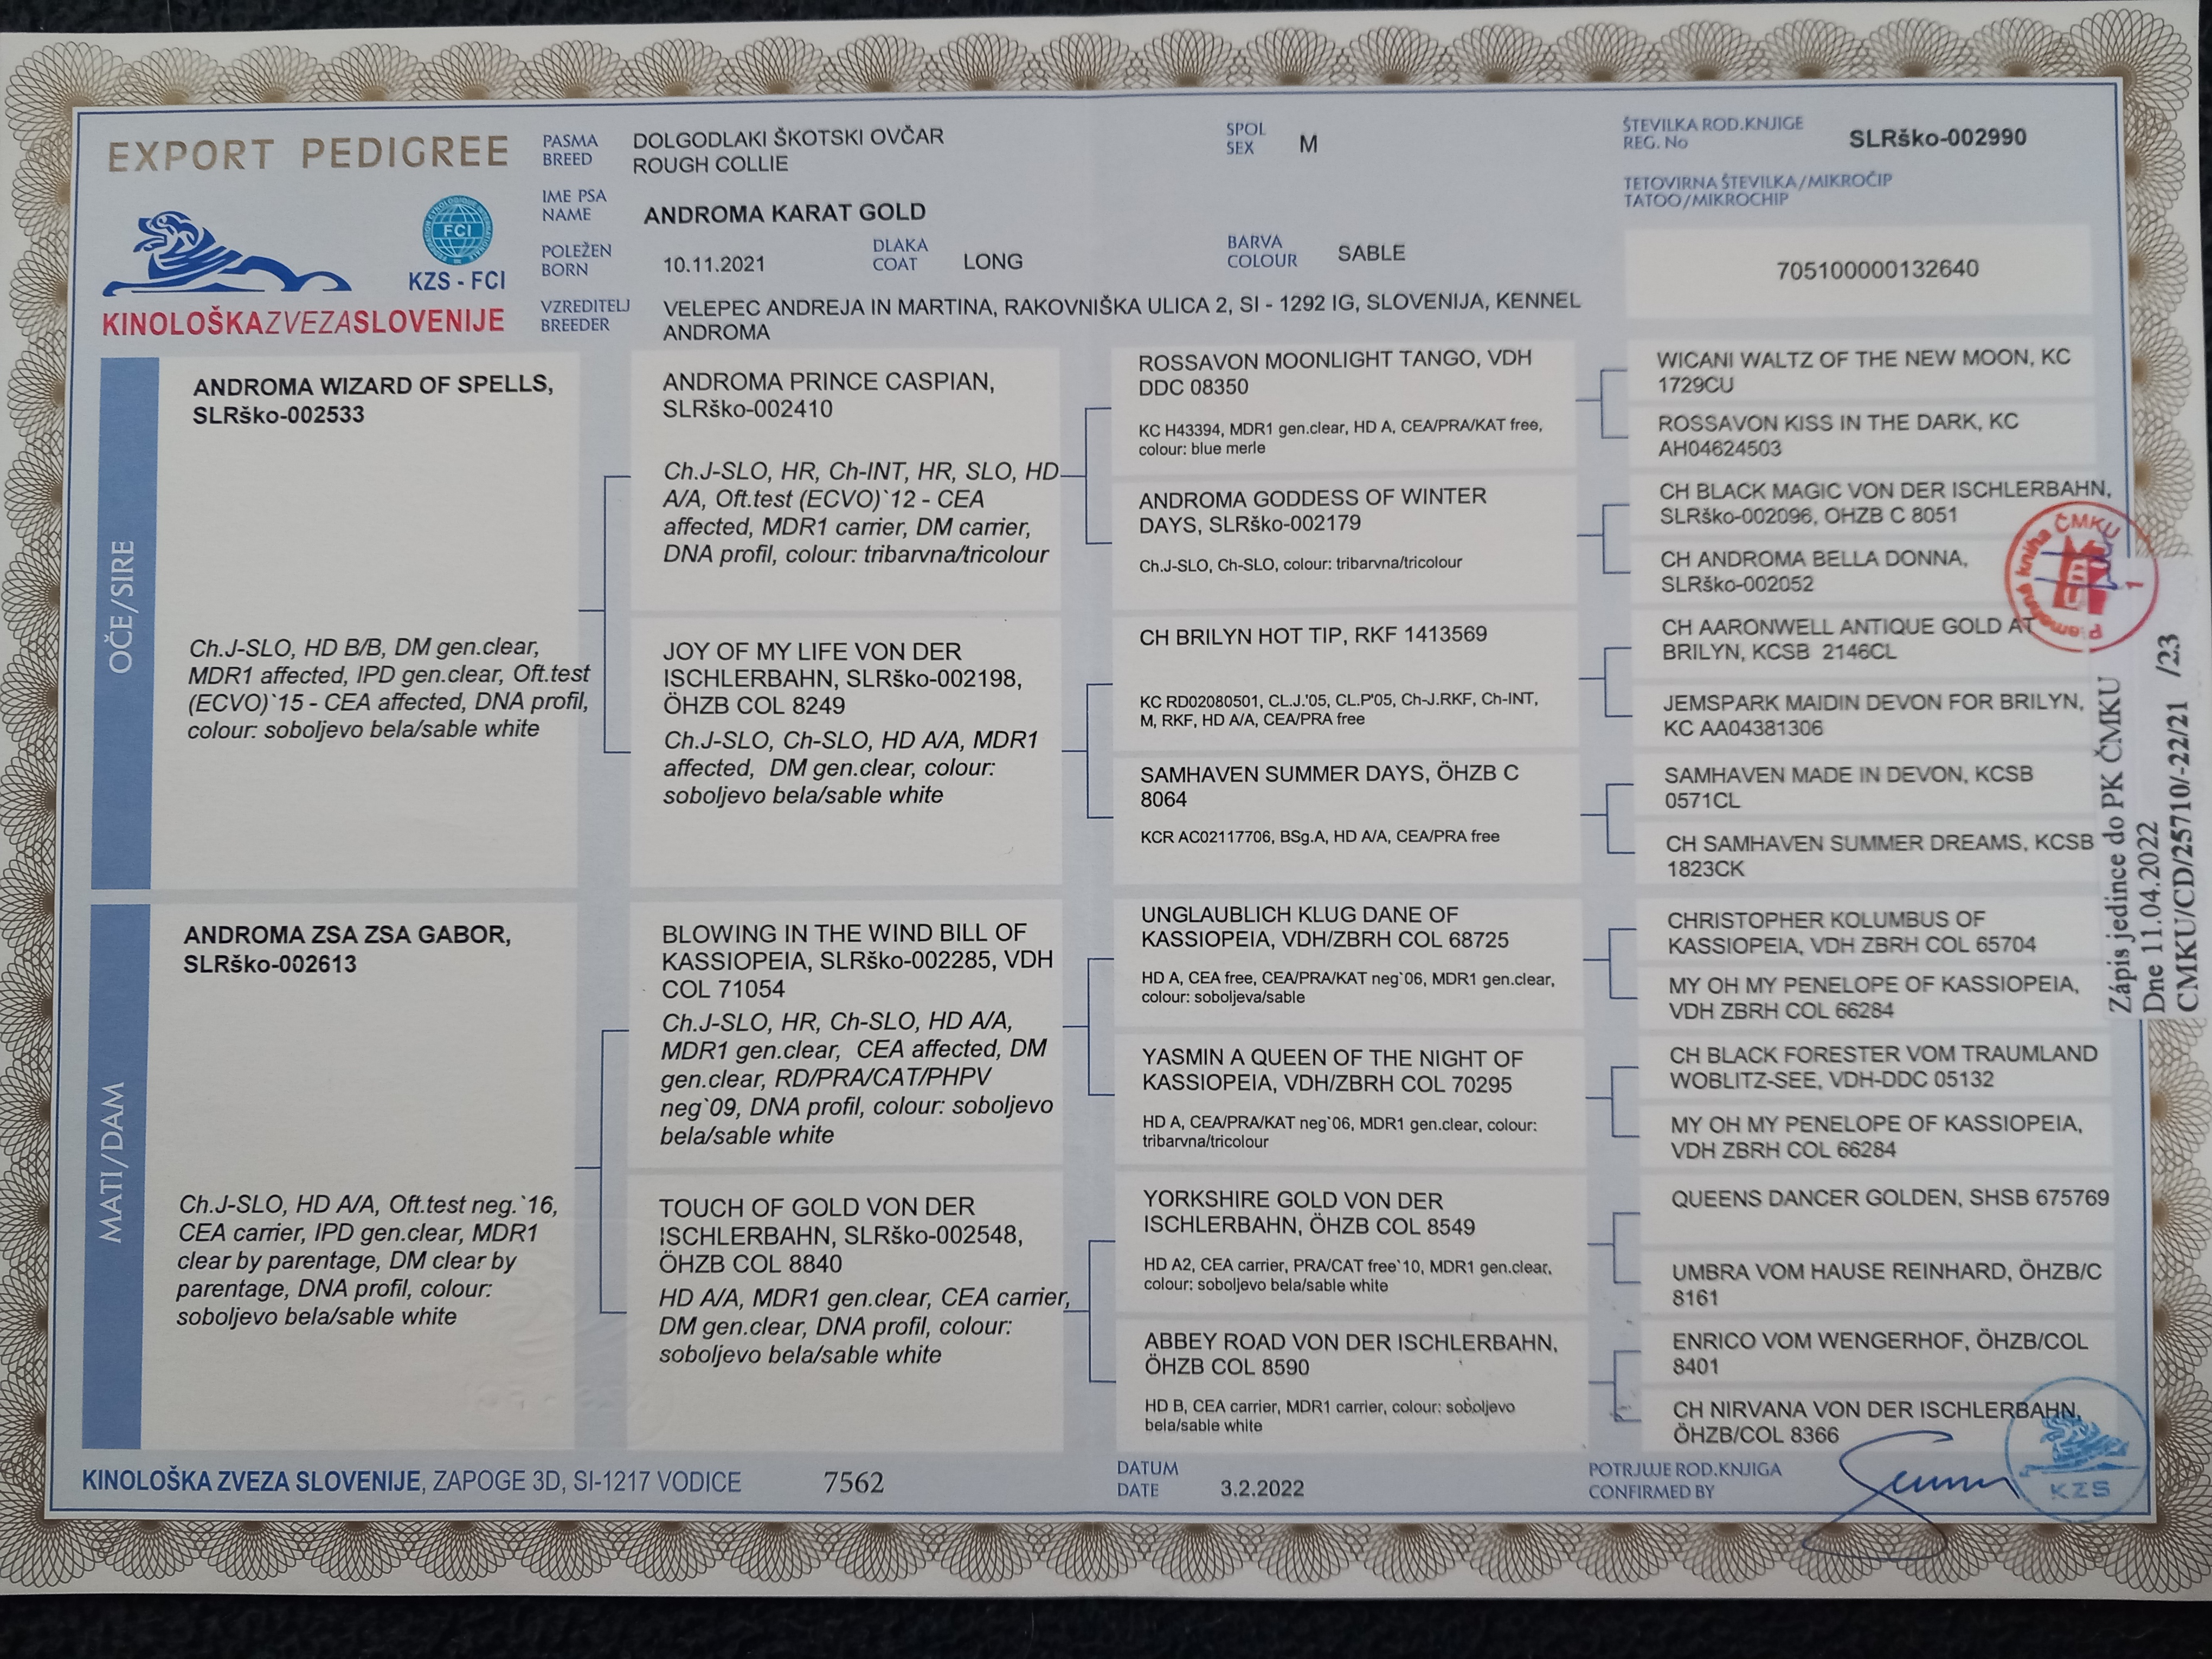 EXPORT PEDIGREE
FCI
KZS - FCI
KINOLOŠKAZVEZASLOVENIJE
PASMA
BREED
DOLGODLAKI ŠKOTSKI OVČAR
ROUGH COLLIE
SPOL
SEX
M
ŠTEVILKA ROD.KNJIGE
REG. No
SLRško-002990
IME PSA
NAME
ANDROMA KARAT GOLD
TETOVIRNA ŠTEVILKA/MIKROČIP
TATOO/MIKROCHIP
705100000132640
POLEŽEN
BORN
10.11.2021
DLAKA
COAT
LONG
BARVA
COLOUR
SABLE
VZREDITELJ
BREEDER
VELEPEC ANDREJA IN MARTINA, RAKOVNIŠKA ULICA 2, SI - 1292 IG, SLOVENIJA, KENNEL
ANDROMA
OČE/SIRE
ANDROMA WIZARD OF SPELLS,
SLRško-002533
Ch.J-SLO, HD B/B, DM gen.clear,
MDR1 affected, IPD gen.clear, Oft.test
(ECVO)`15 - CEA affected, DNA profil,
colour: soboljevo bela/sable white
ANDROMA PRINCE CASPIAN,
SLRško-002410
Ch.J-SLO, HR, Ch-INT, HR, SLO, HD
A/A, Oft.test (ECVO)`12 - CEA
affected, MDR1 carrier, DM carrier,
DNA profil, colour: tribarvna/tricolour
JOY OF MY LIFE VON DER
ISCHLERBAHN, SLRško-002198,
ÖHZB COL 8249
Ch.J-SLO, Ch-SLO, HD A/A, MDR1
affected, DM gen.clear, colour:
soboljevo bela/sable white
ROSSAVON MOONLIGHT TANGO, VDH
DDC 08350
KC H43394, MDR1 gen.clear, HD A, CEA/PRA/KAT free,
colour: blue merle
ANDROMA GODDESS OF WINTER
DAYS, SLRško-002179
Ch.J-SLO, Ch-SLO, colour: tribarvna/tricolour
CH BRILYN HOT TIP, RKF 1413569
KC RD02080501, CL.J.'05, CL.P'05, Ch-J.RKF, Ch-INT,
M, RKF, HD A/A, CEA/PRA free
SAMHAVEN SUMMER DAYS, ÖHZB C
8064
KCR AC02117706, BSg.A, HD A/A, CEA/PRA free
WICANI WALTZ OF THE NEW MOON, KC
1729CU
ROSSAVON KISS IN THE DARK, KC
AH04624503
CH BLACK MAGIC VON DER ISCHLERBAHN,
SLRško-002096, OHZB C 8051
CH ANDROMA BELLA DONNA,
SLRško-002052
CH AARONWELL ANTIQUE GOLD AT
BRILYN, KCSB 2146CL
JEMSPARK MAIDIN DEVON FOR BRILYN,
KC AA04381306
SAMHAVEN MADE IN DEVON, KCSB
0571CL
CH SAMHAVEN SUMMER DREAMS, KCSB
1823CK
MATI/DAM
ANDROMA ZSA ZSA GABOR,
SLRško-002613
Ch.J-SLO, HD A/A, Oft.test neg.`16,
CEA carrier, IPD gen.clear, MDR1
clear by parentage, DM clear by
parentage, DNA profil, colour:
soboljevo bela/sable white
BLOWING IN THE WIND BILL OF
KASSIOPEIA, SLRško-002285, VDH
COL 71054
Ch.J-SLO, HR, Ch-SLO, HD A/A,
MDR1 gen.clear, CEA affected, DM
gen.clear, RD/PRA/CAT/PHPV
neg`09, DNA profil, colour: soboljevo
bela/sable white
TOUCH OF GOLD VON DER
ISCHLERBAHN, SLRško-002548,
ÖHZB COL 8840
HD A/A, MDR1 gen.clear, CEA carrier,
DM gen.clear, DNA profil, colour:
soboljevo bela/sable white
UNGLAUBLICH KLUG DANE OF
KASSIOPEIA, VDH/ZBRH COL 68725
HD A, CEA free, CEA/PRA/KAT neg`06, MDR1 gen.clear,
colour: soboljeva/sable
YASMIN A QUEEN OF THE NIGHT OF
KASSIOPEIA, VDH/ZBRH COL 70295
HD A, CEA/PRA/KAT neg`06, MDR1 gen.clear, colour:
tribarvna/tricolour
YORKSHIRE GOLD VON DER
ISCHLERBAHN, ÖHZB COL 8549
HD A2, CEA carrier, PRA/CAT free`10, MDR1 gen.clear,
colour: soboljevo bela/sable white
ABBEY ROAD VON DER ISCHLERBAHN,
ÖHZB COL 8590
HD B, CEA carrier, MDR1 carrier, colour: soboljevo
bela/sable white
CHRISTOPHER KOLUMBUS OF
KASSIOPEIA, VDH ZBRH COL 65704
MY OH MY PENELOPE OF KASSIOPEIA,
VDH ZBRH COL 66284
CH BLACK FORESTER VOM TRAUMLAND
WOBLITZ-SEE, VDH-DDC 05132
MY OH MY PENELOPE OF KASSIOPEIA,
VDH ZBRH COL 66284
QUEENS DANCER GOLDEN, SHSB 675769
UMBRA VOM HAUSE REINHARD, ÖHZB/C
8161
ENRICO VOM WENGERHOF, ÖHZB/COL
8401
CH NIRVANA VON DER ISCHLERBAHN,
ÖHZB/COL 8366
Plemenná kniha ČMKU
1
Zápis jedince do PK ČMKU
Dne 11.04.2022
CMKU/CD/25710/-22/21 /23
KINOLOŠKA ZVEZA SLOVENIJE, ZAPOGE 3D, SI-1217 VODICE
7562
DATUM
DATE
3.2.2022
POTRJUJE ROD.KNJIGA
CONFIRMED BY
KZS